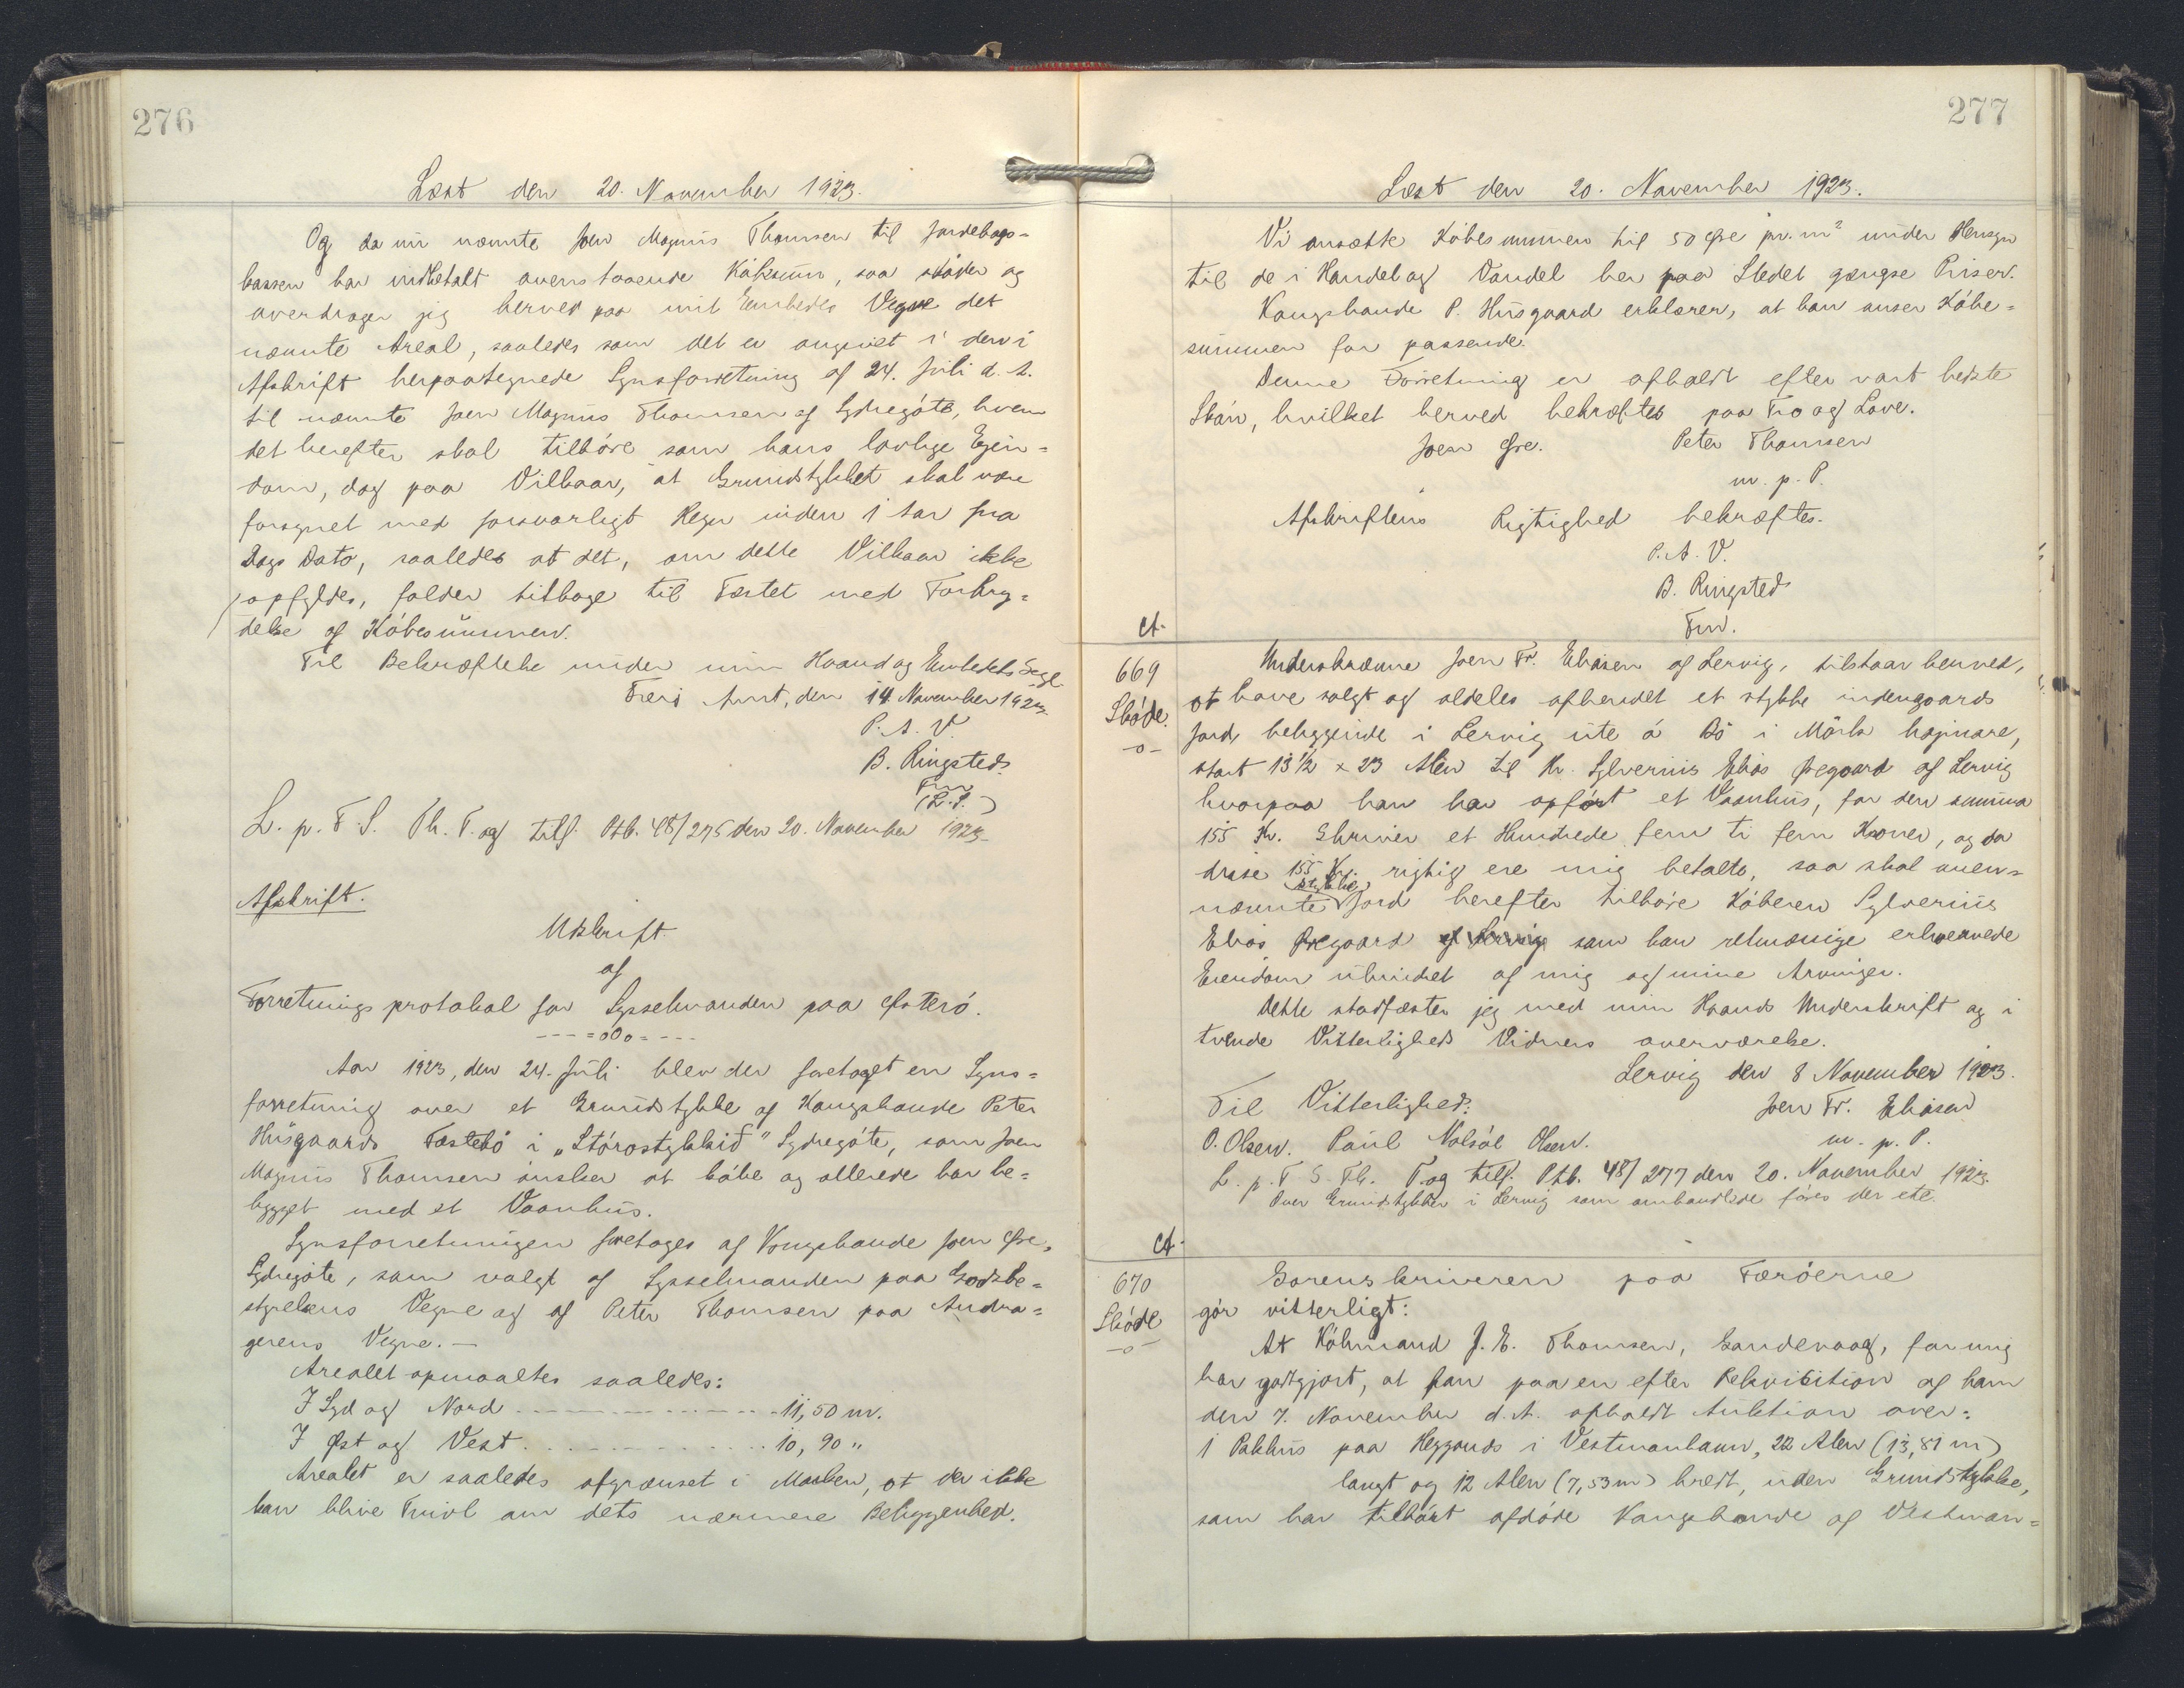 276
Læst den 20. November 1923.
Og da nu nævnte Joen Magnus Thomsen til Jordebogs=
kassen har indbetalt ovenstaaende Købesum, saa skøder og
overdrager jeg herved paa mit Embedes Vegne det
nævnte Areal, saaledes som det er angivet i den i
Afskrift herpaategnede Synsforretning af 24. Juli d. A.
til nævnte Joen Magnus Thomsen af Sydregöte, hvem
det herefter skal tilhöre som hans lovlige Ejen=
dom, dog paa Vilkaar, at Grundstykket skal være
forsynet med forsvarligt Hegn inden 1 Aar fra
Dags Dato, saaledes at det, om dette Vilkaar ikke
opfyldes, falder tilbage til Fæstet med Forbry=
delse af Köbesummen.
Til Bekræftelse under min Haand og Embedets Segl
Færö Amt, den 14 November 1923
P. A. V.
B. Ringsted
Fm
(L. S.)
L. p. F. S. Th. T. og tilf. Ptb. 48/276 den 20. November 1923
Afskrift.
Udskrift
af
Forretningsprotokol for Sysselmanden paa Østerö.
---=oOo=---
Aar 1923, den 24. Juli blev der foretaget en Syns=
forretning over et Grundstykke af Kongsbonde Peter
Husgaards Fæstebö i „Stórostykkið" Sydregöte, som Joen
Magnus Thomsen ønsker at köbe og allerede har be=
bygget med et Vaanhus.
Synsforretningen foretoges af Kongsbonde Joen Øre,
Sydregöte, som valgt af Sysselmanden paa Godsbe=
styrelsens Vegne og af Peter Thomsen paa Andra=
gerens Vegne. —
Arealet opmaaltes saaledes:
I Syd og Nord - - - - - - - - 11,50 m.
I Øst og Vest - - - - - - - - 10,90 "
Arealet er saaledes afgrænset i Marken, at der ikke
kan blive Tvivl om dets nærmere Beliggenhed.
277
Læst den 20. November 1923.
Vi ansætte Købesummen til 50 Øre pr. m² under Hensyn
til de i Handel og Vandel her paa Stedet gængse Priser.
Kongsbonde P. Husgaard erklærer, at han anser Köbe=
summen for passende.
Denne Forretning er afholdt efter vort bedste
Skön, hvilket herved bekræftes paa Tro og Love.
Joen Øre. Peter Thomsen
m. p. P.
Afskriftens Rigtighed bekræftes.
P. A. V.
B. Ringsted
Fm.
A.
669
Sköde.
-o-
Underskrevne Joen Fr. Eliasen af Lervig, tilstaar herved,
at have solgt og aldeles afhendet et stykke indengaards
Jord, beliggende i Lervig úte á Bö i Mörk hajnare,
stort 13½ x 23 Alen til Hr. Sylverius Elias Øregaard af Lervig
hvorpaa han har opfört et Vaanhus, for den summa
155 Kr. Skriver et Hundrede fem ti fem Kroner, og da
disse 155 Kr. rigtig ere mig betalte, saa skal oven=
nævnte stykke Jord herefter tilhöre Köberen Sylverius
Elias Øregaard af Lervig som han retmæssige erhvervede
Eiendom uhindret af mig og mine Arvinger.
Dette stadfæster jeg med min Haands Underskrift og i
tvende Vitterligheds Vidners overværelse.
Lervig den 8 November 1923.
Til Vitterlighed: Joen Fr. Eliasen
O. Olsen. Poul Nolsöe Olsen. m. p. P.
L. p. F. S. Th. T. og tilf. Ptb. 48/277 den 20. November 1923.
Over Grundstykker i Lervig som omhandlede föres der ete
A.
670
Sköde
-o-
Sorenskriveren paa Færöerne
gör vitterligt:
At Köbmand J. E. Thomsen, Sandevaag, for mig
har godtgjort, at han paa en efter Rekvisition af ham
den 7. November d. A. afholdt Auktion over:
1 Pakhus paa Heygnd i Vestmanhavn, 22 Alen (13,81 m)
langt og 12 Alen (7,53 m) bredt, uden Grundstykke,
som har tilhört afdöde Kongsbonde af Vestman=